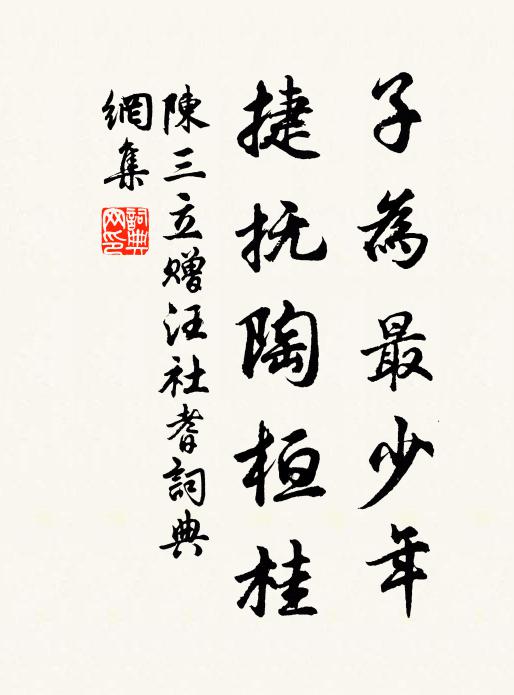 子為最少年
捷抚陶桓桂
陳三立赠汪社耆詞典
網集
詞典
网印